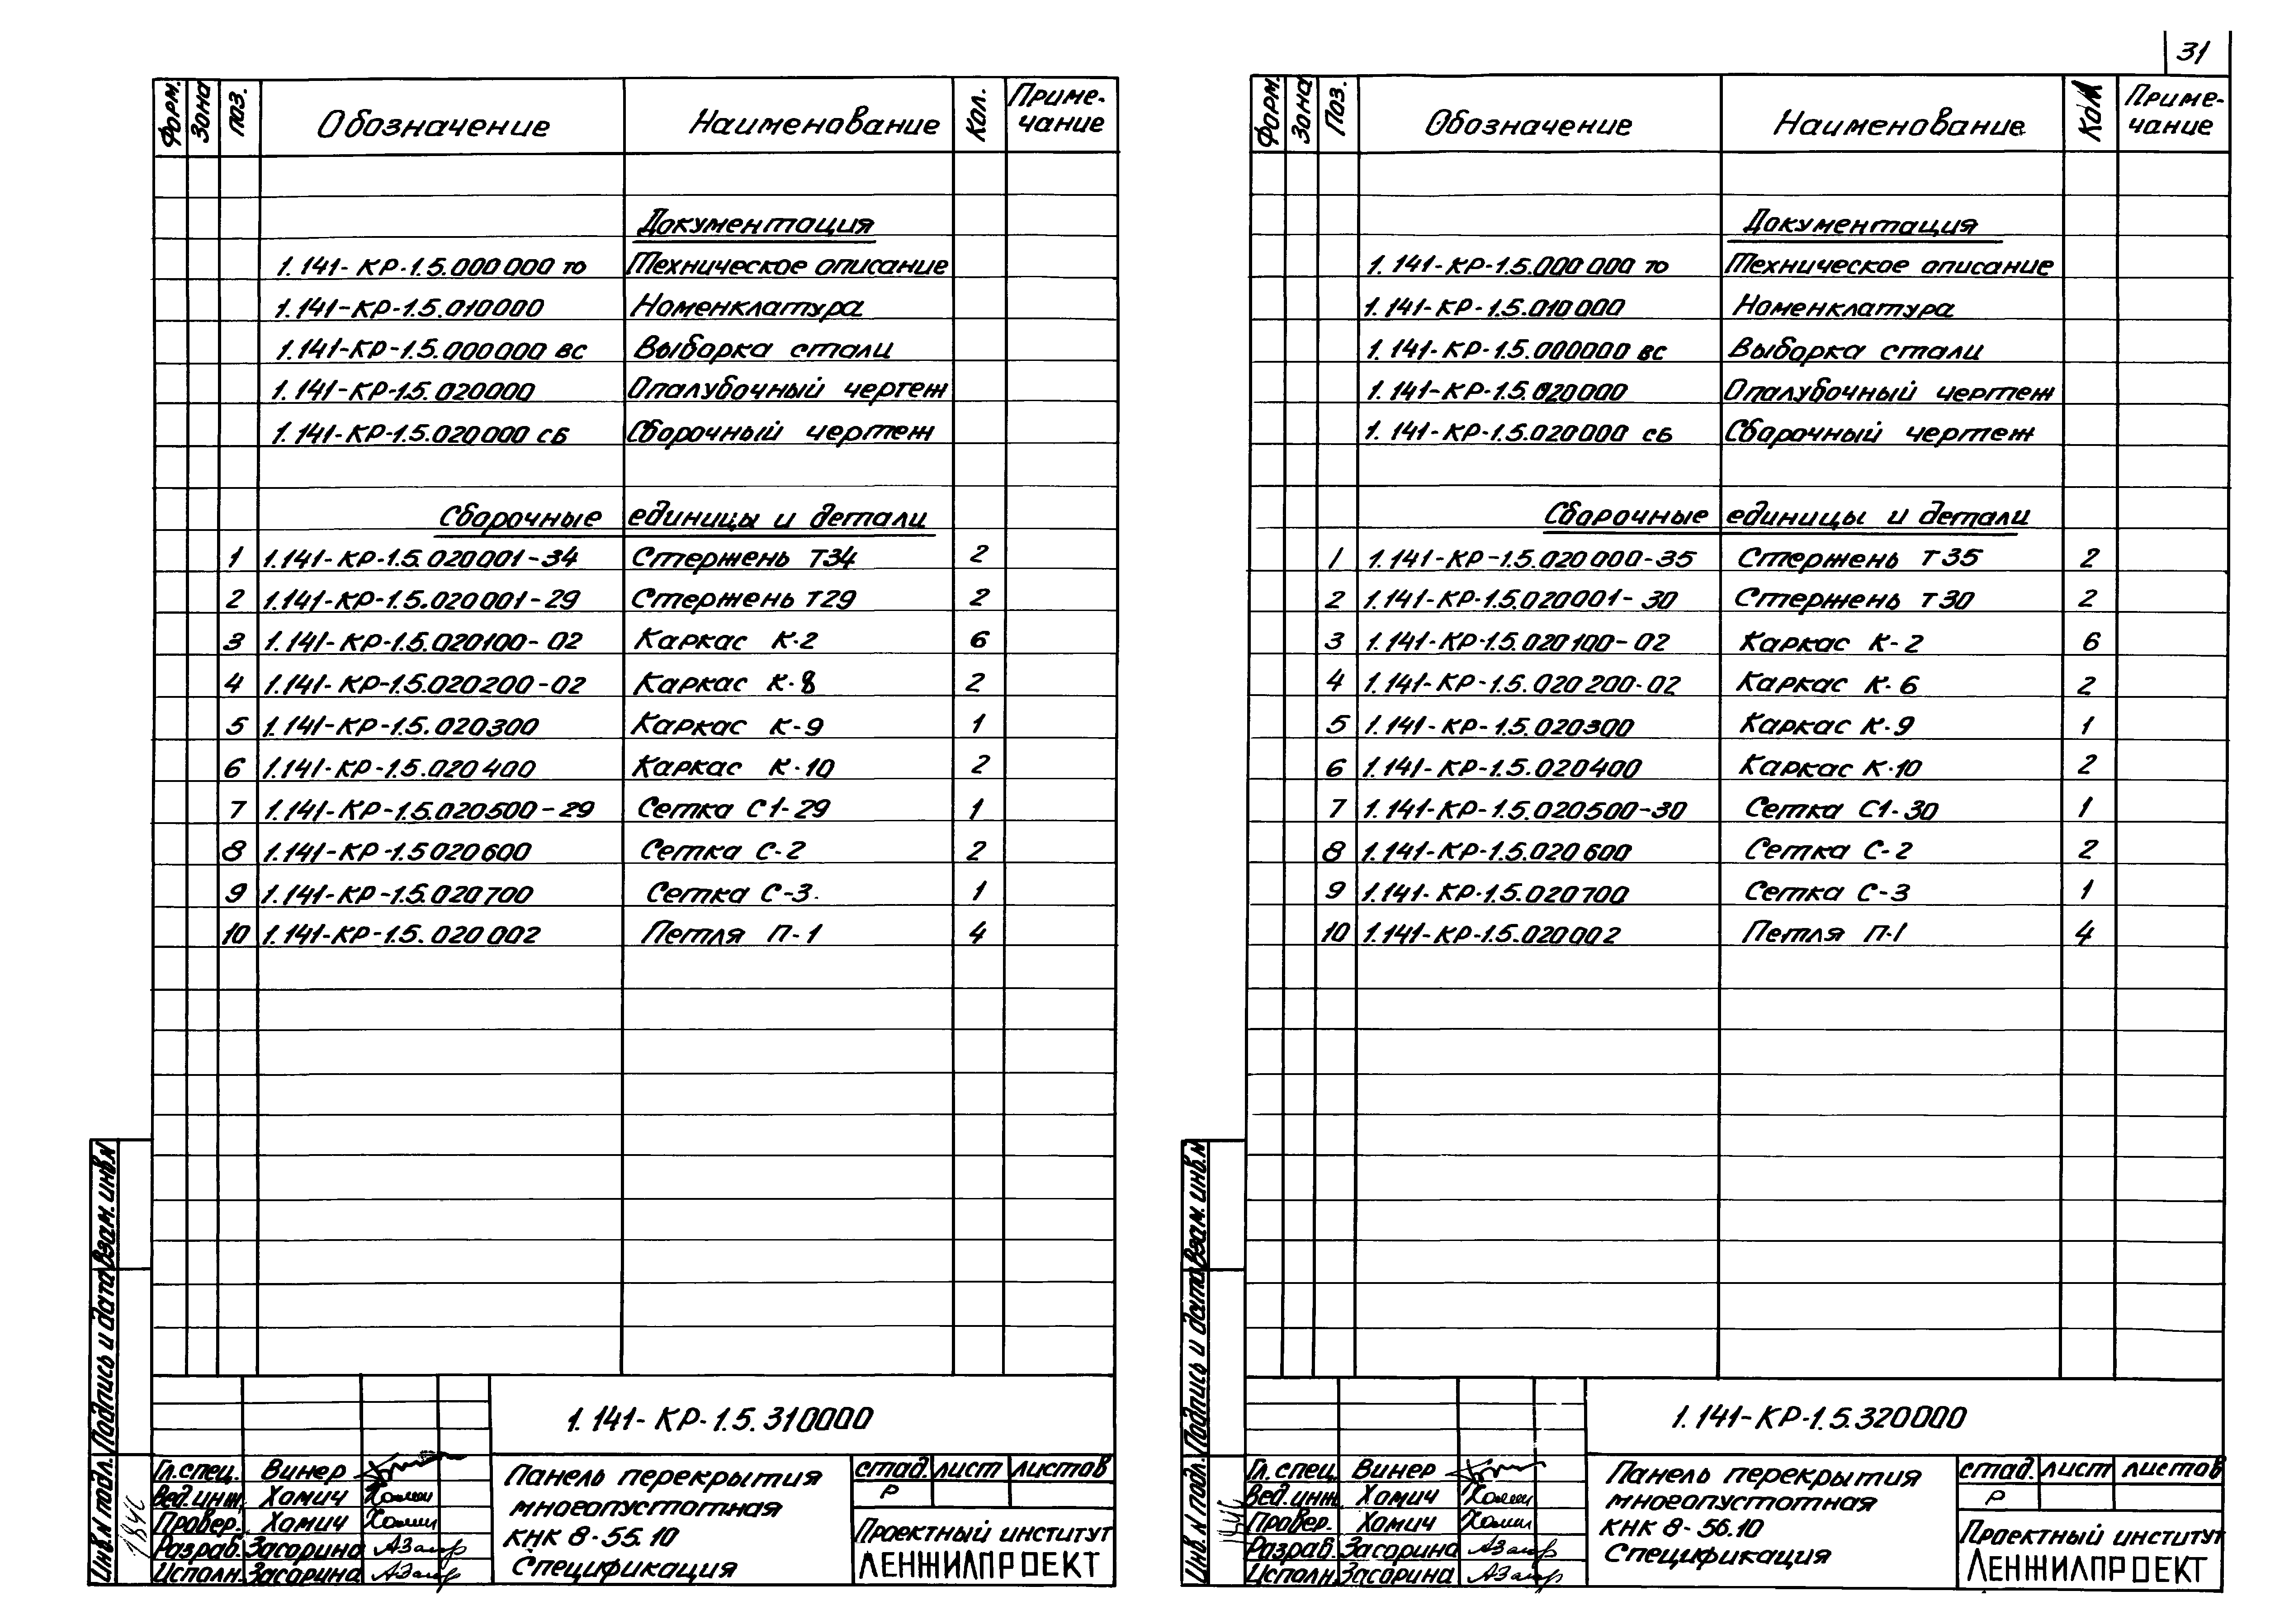 31
Форм. Зона Поз. Обозначение Наименование Кол. Приме-
чание
Документация
1.141-КР-1.5.000000 ТО Техническое описание
1.141-КР-1.5.010000 Номенклатура
1.141-КР-1.5.000000 ВС Выборка стали
1.141-КР-1.5.020000 Опалубочный чертеж
1.141-КР-1.5.020000 СБ Сборочный чертеж
Сборочные единицы и детали
1 1.141-КР-1.5.020001-34 Стержень Т34 2
2 1.141-КР-1.5.020001-29 Стержень Т29 2
3 1.141-КР-1.5.020100-02 Каркас К-2 6
4 1.141-КР-1.5.020200-02 Каркас К-8 2
5 1.141-КР-1.5.020300 Каркас К-9 1
6 1.141-КР-1.5.020400 Каркас К-10 2
7 1.141-КР-1.5.020500-29 Сетка С1-29 1
8 1.141-КР-1.5020600 Сетка С-2 2
9 1.141-КР-1.5.020700 Сетка С-3. 1
10 1.141-КР-1.5.020002 Петля П-1 4
Инв.N подл. Подпись и дата Взам. инв.N
1.141-КР-1.5.310000
Гл.спец. Винер
Вед.инж. Хомич
Провер. Хомич
Разраб. Засорина
Исполн. Засорина
Панель перекрытия
многопустотная
КНК 8-55.10
Спецификация
стад. лист листов
Р
Проектный институт
ЛЕНЖИЛПРОЕКТ
Форм. Зона Поз. Обозначение Наименование Кол Приме-
чание
Документация
1.141-КР-1.5.000000 ТО Техническое описание
1.141-КР-1.5.010000 Номенклатура
1.141-КР-1.5.000000 ВС Выборка стали
1.141-КР-1.5.020000 Опалубочный чертеж
1.141-КР-1.5.020000 СБ Сборочный чертеж
Сборочные единицы и детали
1 1.141-КР-1.5.020000-35 Стержень Т35 2
2 1.141-КР-1.5.020001-30 Стержень Т30 2
3 1.141-КР-1.5.020100-02 Каркас К-2 6
4 1.141-КР-1.5.020200-02 Каркас К-6 2
5 1.141-КР-1.5.020300 Каркас К-9 1
6 1.141-КР-1.5.020400 Каркас К-10 2
7 1.141-КР-1.5.020500-30 Сетка С1-30 1
8 1.141-КР-1.5.020600 Сетка С-2 2
9 1.141-КР-1.5.020700 Сетка С-3 1
10 1.141-КР-1.5.020002 Петля П-1 4
Инв.N подл. Подпись и дата Взам. инв.N
1.141-КР-1.5.320000
Гл.спец. Винер
Вед.инж. Хомич
Провер. Хомич
Разраб. Засорина
Исполн. Засорина
Панель перекрытия
многопустотная
КНК 8-56.10
Спецификация
стад. лист листов
Р
Проектный институт
ЛЕНЖИЛПРОЕКТ